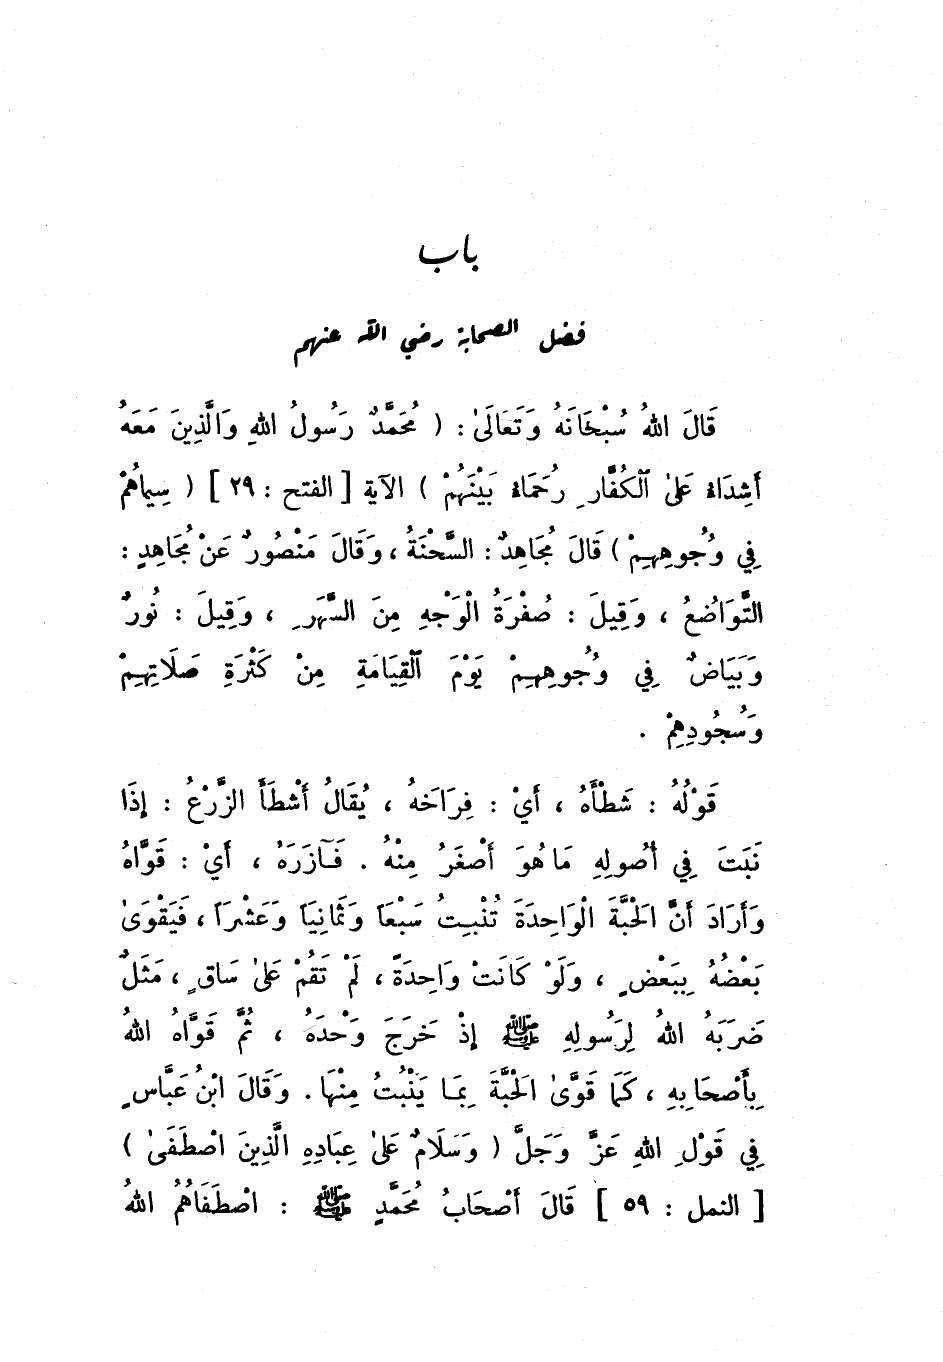 باب
فضل الصحابة رضي الله عنهم
قَالَ اللهُ سُبْحَانَهُ وَتَعَالَىٰ : ( مُحَمَّدٌ رَسُولُ اللهِ وَالَّذِينَ مَعَهُ
أَشِدَاءُ عَلىٰ ٱلكُفَّارِ رُحَمَاءُ بَيْنَهُمْ ) الآية [ الفتح : ٢٩ ] ( سِيمَاهُمْ
فِي وُجُوهِهِمْ ) قَالَ مُجَاهِدٌ : السَّحْنَةُ ، وَقَالَ مَنْصُورٌ عَنْ مُجَاهِدٍ :
التَّوَاضُعُ ، وَقِيلَ : صُفْرَةُ الْوَجْهِ مِنَ السَّهَرِ ، وَقِيلَ : نُورٌ
وَبَيَاضٌ فِي وُجُوهِهِمْ يَوْمَ ٱلْقِيَامَةِ مِنْ كَثْرَةِ صَلَاتِهِمْ
وَسُجُودِهِمْ .
قَوْلُهُ : شَطْأَهُ ، أَيْ : فِرَاخَهُ ، يُقَالُ أَشْطَأَ الزَّرْعُ : إِذَا
نَبَتَ فِي أُصُولِهِ مَا هُوَ أَصْغَرُ مِنْهُ . فَـآزَرَهُ ، أَيْ : قَوَّاهُ
وَأَرَادَ أَنَّ الحَبَّةَ الْوَاحِدَةَ تُنْبِتُ سَبْعَاً وَثَمَانِيَاً وَعَشْرَاً ، فَيَقْوَىٰ
بَعْضُهُ بِبَعْضٍ ، وَلَوْ كَانَتْ وَاحِدَةً ، لَمْ تَقُمْ عَلىٰ سَاقٍ ، مَثَلٌ
ضَرَبَهُ اللهُ لِرَسُولِهِ ﷺ إِذْ خَرَجَ وَحْدَهُ ، ثُمَّ قَوَّاهُ اللهُ
بِأَصْحَابِهِ ، كَمَا قَوَّىٰ الحَبَّةَ بِمَا يَنْبُتُ مِنْهَا . وَقَالَ ابْنُ عَبَّاسٍ
فِي قَوْلِ اللهِ عَزَّ وَجَلَّ ( وَسَلَامٌ عَلىٰ عِبَادِهِ الَّذِينَ اصْطَفَىٰ )
[ النمل : ٥٩ ] قَالَ أَصْحَابُ مُحَمَّدٍ ﷺ : اصْطَفَاهُمُ اللهُ